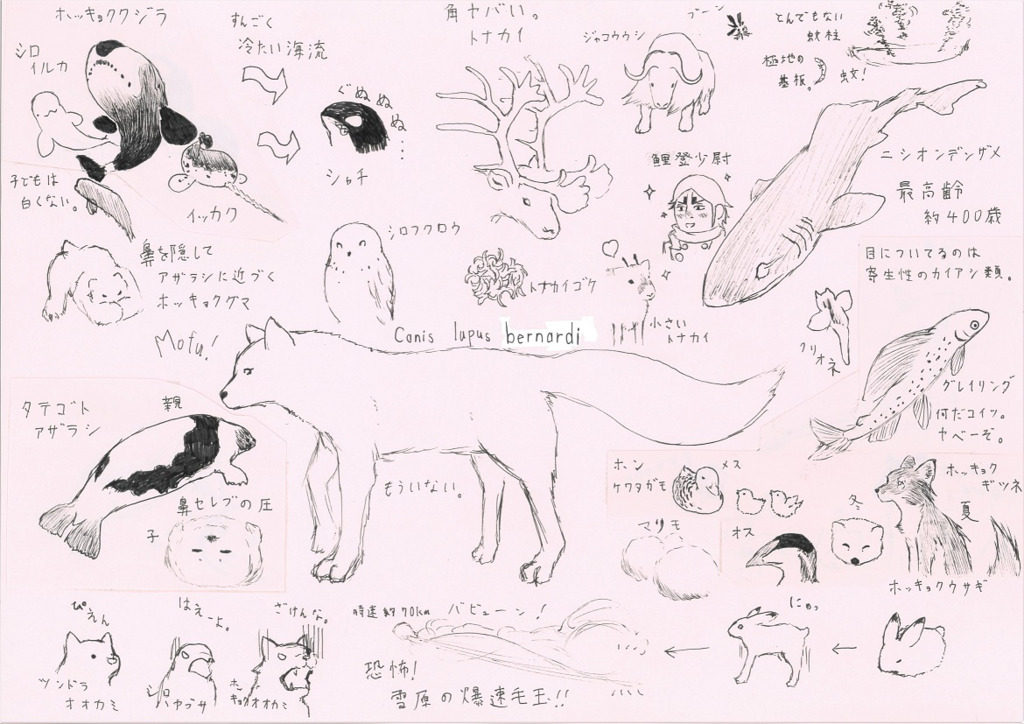 ホッキョククジラ
シロ
イルカ
子どもは
白くない。
イッカク
すんごく
冷たい海流
ぐぬぬぬぬ…
シャチ
角ヤバい。
トナカイ
ジャコウウシ
ブーン
とんでもない
蚊柱
極地の
基板。
蚊!
鯉登少尉
ニシオンデンザメ
最高齢
約400歳
目についてるのは
寄生性のカイアシ類。
鼻を隠して
アザラシに近づく
ホッキョクグマ
シロフクロウ
トナカイゴケ
小さい
トナカイ
クリオネ
グレイリング
何だコイツ。
ヤベーぞ。
Mofu!
Canis lupus bernardi
もういない。
タテゴト
アザラシ
親
鼻セレブの圧
子
ホン
ケワタガモ
メス
オス
マリモ
ホッキョク
ギツネ
冬
夏
ホッキョクウサギ
にゅっ
時速約70km
バビューン!
恐怖!
雪原の爆速毛玉!!
ぴえん
ツンドラ
オオカミ
はえーよ。
シロ
ハヤブサ
ざけんな。
ホッ
キョクオオカミ